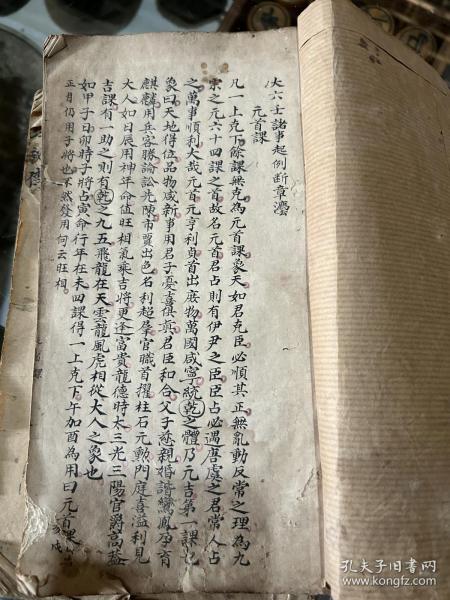 大六壬諸事起例断章灋
元首課
凡一上克下餘課無克為元首課象天如君克臣必順其正無亂動反常之理為九
宗之元六十四課之首故名元首君占則有伊尹之臣臣占必遇唐虞之君常人占
之萬事順利大哉元首元亨利貞首出庶物萬國咸寧統乾之體乃元吉第一課也
象曰天地得位品物咸新事用君子憂喜俱真君臣和合父子慈親婚諧鸞鳳孕育
麒麟用兵客勝論訟先陳市賈出色名利超群官職首擢柱石元勳門庭喜溢利見
大人如日辰用神年命值旺相氣乘吉將更逢富貴龍德時太三光三陽官爵高益
吉課有一助之則有乾之九五飛龍在天雲龍風虎相從大人之象也
如甲子日卯時子將占寅命行年在未四課得一上克下午加酉為用曰元首課
正月仍用子將也不然發用何云旺相
孔夫子旧书网
book.kongfz.com